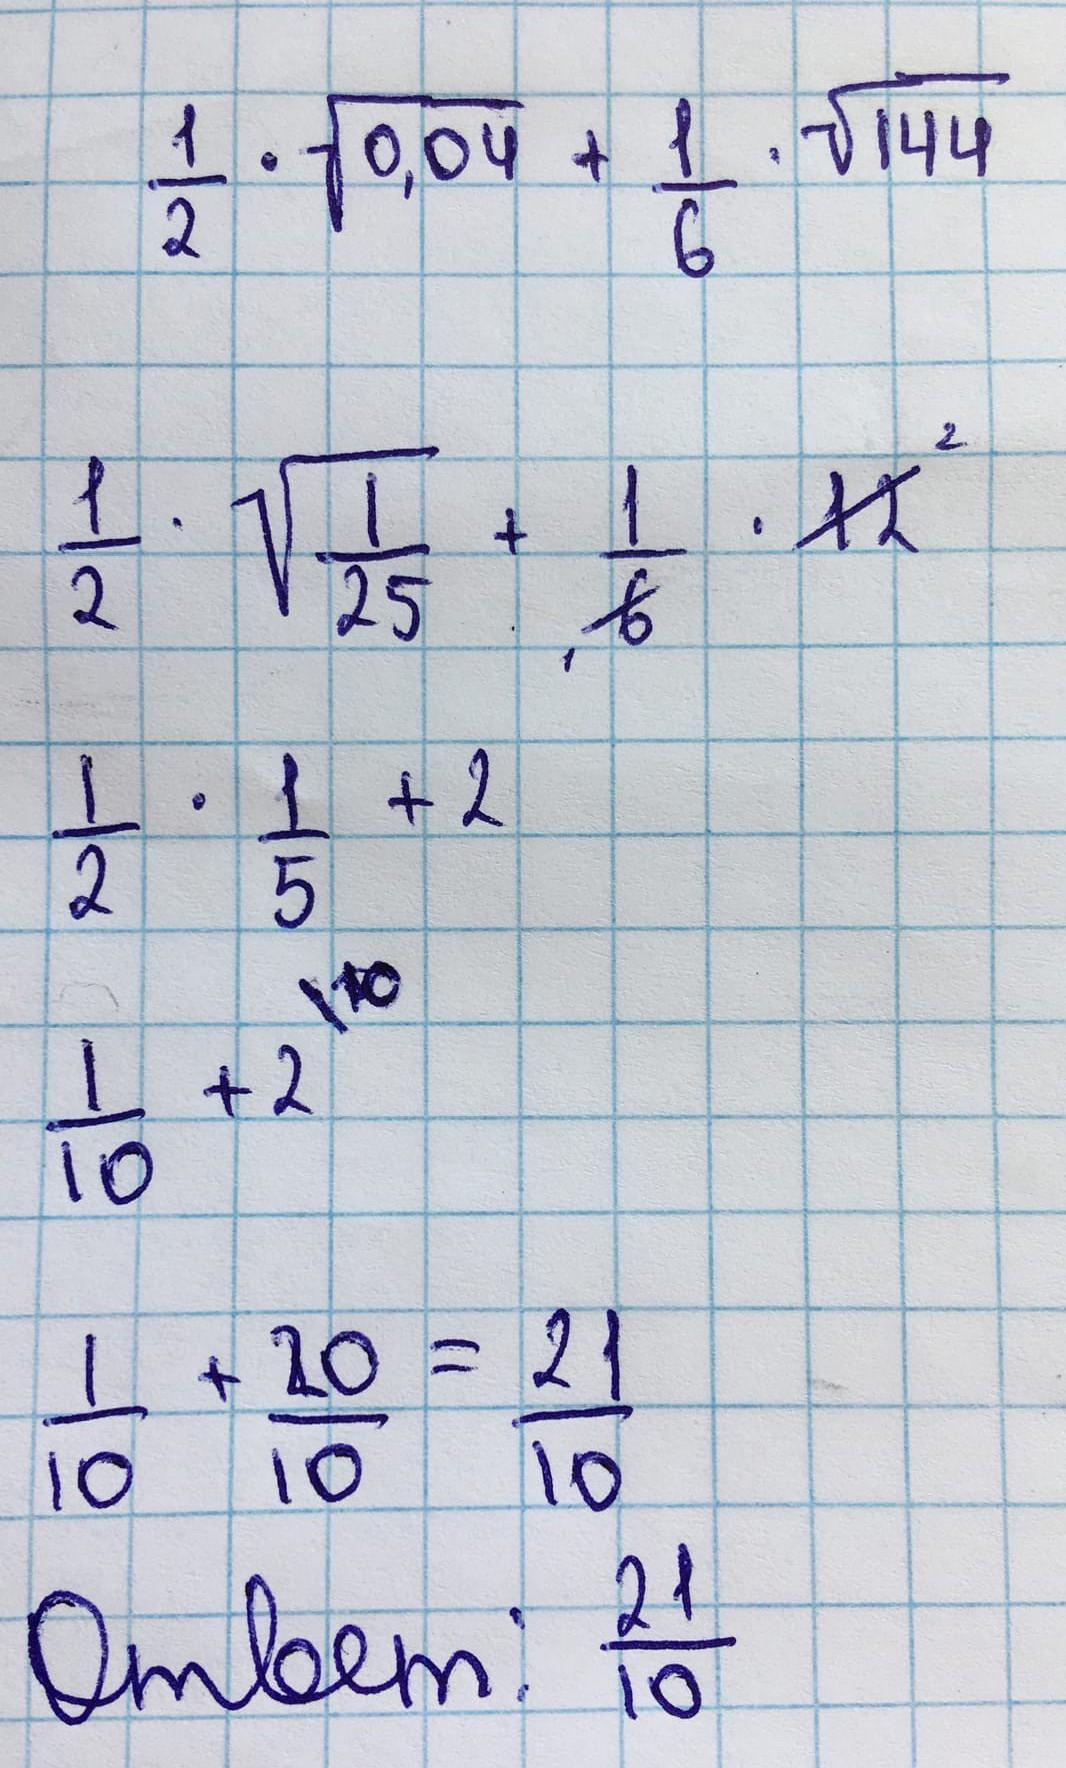 1/2 · √0,04 + 1/6 · √144
1/2 · √(1/25) + 1/6 · 12 2
1
1/2 · 1/5 + 2
1/10 + 2 \10
1/10 + 20/10 = 21/10
Ответ: 21/10